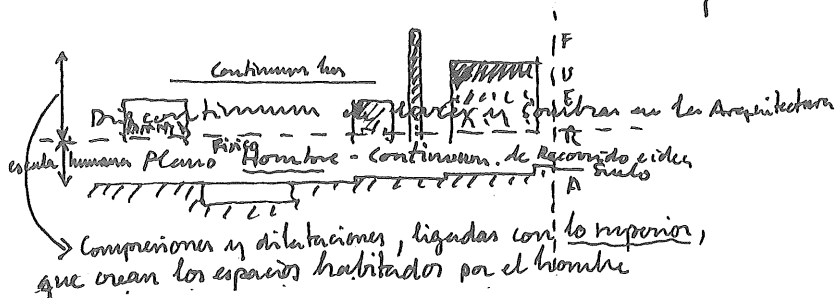 Continuum luz
Discontinuum de luces y sombras en la Arquitectura
Físico
escala humana Plano Hombre - Continuum de Recorrido e idea
Suelo
FUERA
Compresiones y dilataciones, ligadas con lo superior,
que crean los espacios habitados por el hombre